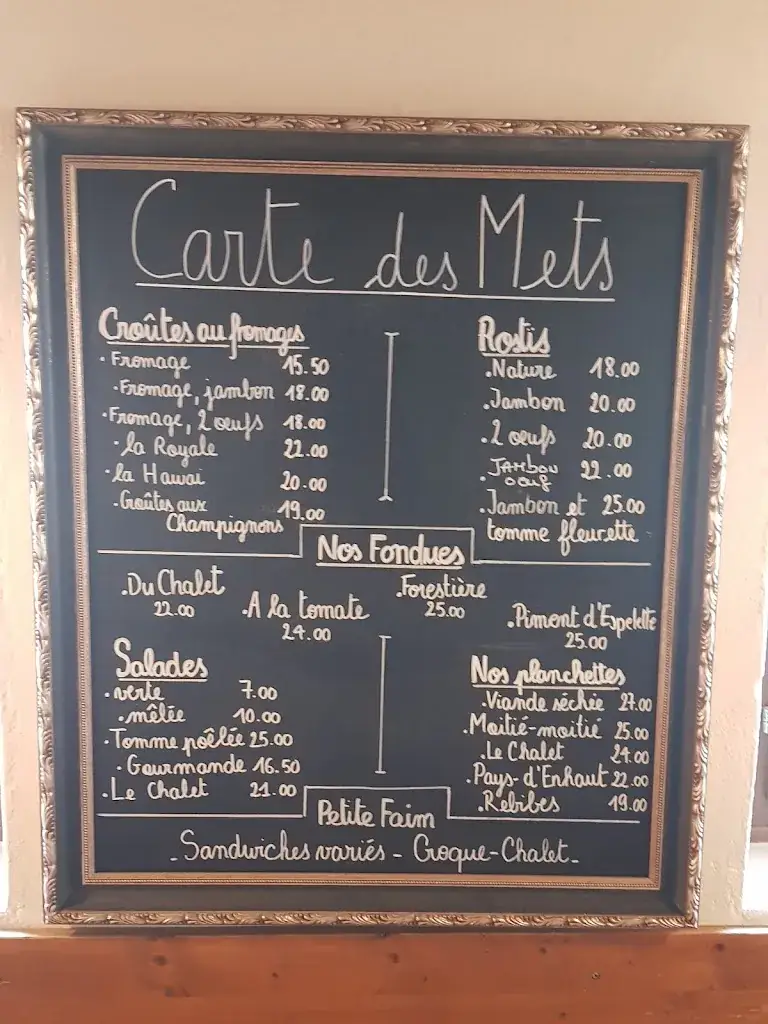 Carte des Mets
Croûtes au fromages
· Fromage 15.50
· Fromage, jambon 18.00
· Fromage, 2 oeufs 18.00
· la Royale 22.00
· la Hawai 20.00
· Croûtes aux
Champignons 19.00
Rostis
. Nature 18.00
. Jambon 20.00
. 2 oeufs 20.00
. JAMbon
oeuf 22.00
. Jambon et 25.00
tomme fleurette
Nos Fondues
. Du Chalet
22.00
. A la tomate
24.00
. Forestière
25.00
. Pimont d'Espelette
25.00
Salades
. verte 7.00
. mêlée 10.00
. Tomme poêlée 25.00
. Gourmande 16.50
. Le Chalet 21.00
Nos planchettes
. Viande séchée 27.00
. Moitié-moitié 25.00
. Le Chalet 24.00
. Pays-d'Enhaut 22.00
. Rebibes 19.00
Petite Faim
- Sandwiches variés - Croque-Chalet -